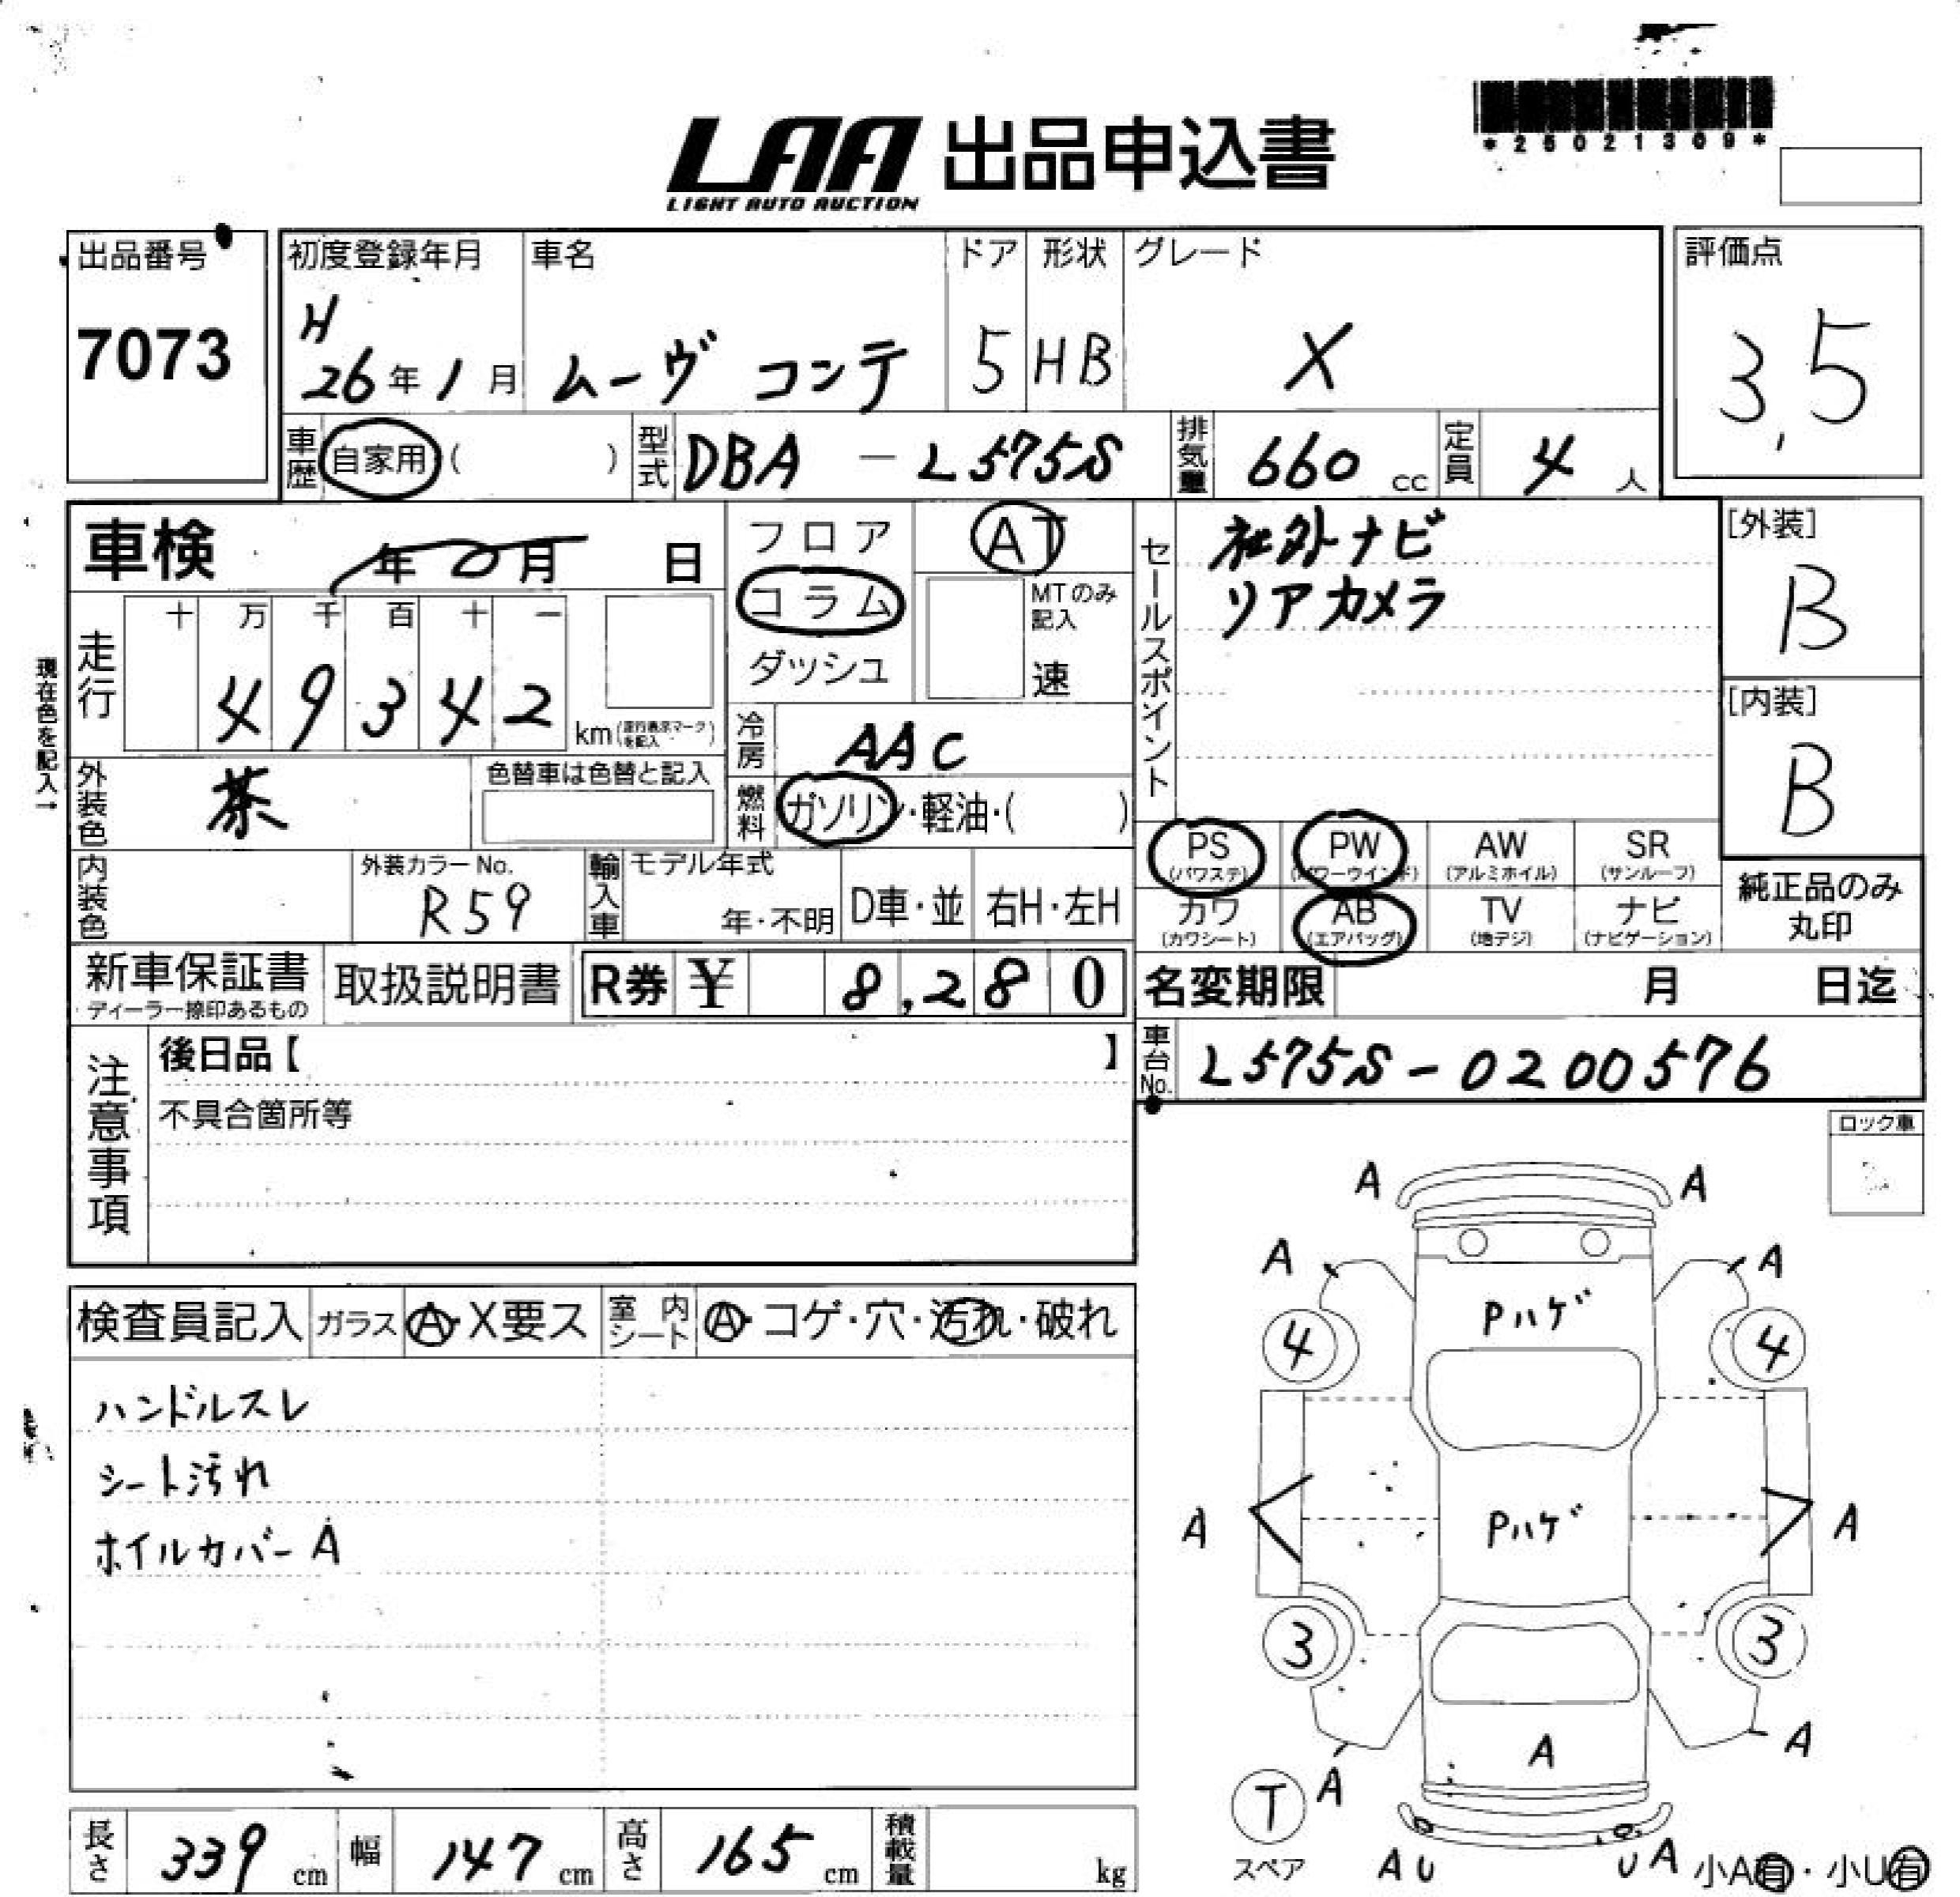 *25021309*
LAA 出品申込書
LIGHT AUTO AUCTION
出品番号
7073
初度登録年月
H
26年1月
車名
ムーヴ コンテ
ドア
5
形状
HB
グレード
X
評価点
3.5
車歴 自家用 ( )
型式 DBA - L575S
排気量 660 cc
定員 4 人
車検 年 月 日
フロア
コラム
ダッシュ
AT
MTのみ
記入
速
セールスポイント
社外ナビ
リアカメラ
[外装]
B
[内装]
B
現在色を記入→
走行
十 万 千 百 十 一
4 9 3 4 2
km (走行表示マークを記入)
冷房 AAC
燃料 ガソリン・軽油・( )
外装色 茶
色替車は色替と記入
内装色
外装カラーNo.
R59
輸入車
モデル年式
年・不明
D車・並
右H・左H
PS
(パワステ)
PW
(パワーウインド)
AW
(アルミホイル)
SR
(サンルーフ)
カワ
(カワシート)
AB
(エアバッグ)
TV
(地デジ)
ナビ
(ナビゲーション)
純正品のみ
丸印
新車保証書
ディーラー捺印あるもの
取扱説明書
R券 ¥ 8,280
名変期限 月 日迄
車台No. L575S-0200576
注意事項
後日品【 】
不具合箇所等
ロック車
検査員記入
ガラス A・X要ス
室内シート A・コゲ・穴・汚れ・破れ
ハンドルスレ
シート汚れ
ホイルカバーA
A A
A A
Pハゲ
4 4
Pハゲ
A A
3 3
A
A
A
T
スペア
AU
UA
小A有・小U有
長さ 339 cm
幅 147 cm
高さ 165 cm
積載量 kg